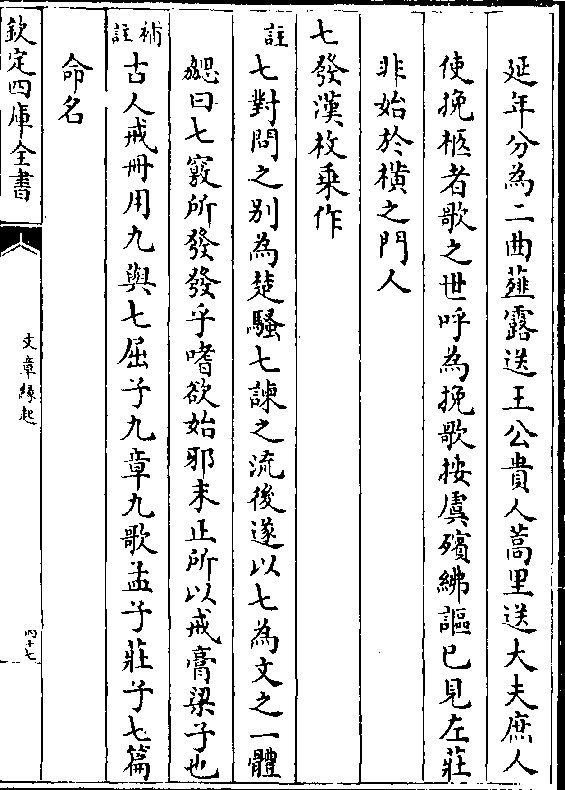 延年分為二曲薤露送王公貴人蒿里送大夫庶人
使挽柩者歌之世呼為挽歌按虞殯紼謳已見左莊
非始於橫之門人
七發漢枚乗作
註
七對問之别為楚騷七諫之流後遂以七為文之一體
勰曰七竅所發發乎嗜欲始邪末正所以戒膏粱子也
補註
古人戒冊用九與七屈子九章九歌孟子莊子七篇
命名
欽定四庫全書
文章緣起
四十七